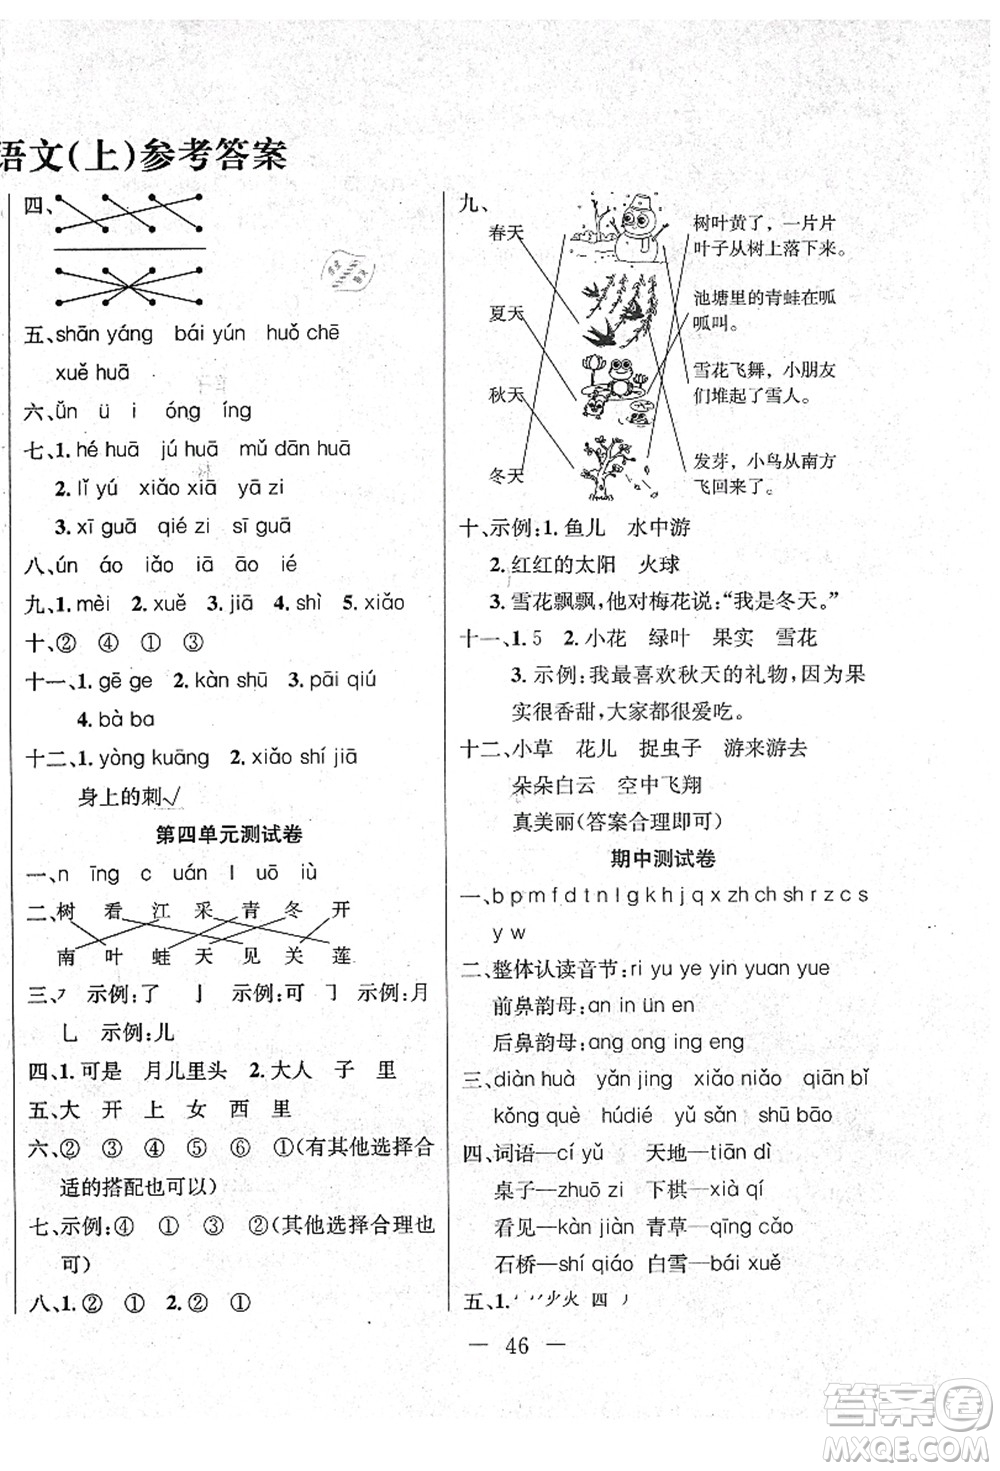 语文(上)参考答案
四、
五、shān yáng bái yún huǒ chē
xuě huā
六、ǔn ü i óng íng
七、1.hé huā jú huā mǔ dān huā
2.lǐ yú xiǎo xiā yā zi
3.xī guā qié zi sī guā
八、ún áo iáo iā āo ié
九、1.mèi 2.xuě 3.jiā 4.shì 5.xiǎo
十、② ④ ① ③
十一、1.gē ge 2.kàn shū 3.pāi qiú
4.bà ba
十二、1.yòng kuāng 2.xiǎo shí jiā
身上的刺√
第四单元测试卷
一、n īng c uán l ōu iù
二、树 看 江 采 青 冬 开
南 叶 蛙 天 见 关 莲
三、㇇ 示例:了 亅 示例:可 ㇆ 示例:月
乚 示例:儿
四、1.可是 月儿里头 2.大人 子 里
五、大 开 上 女 西 里
六、② ③ ④ ①(有其他选择合
适的搭配也可以)
七、示例:④ ① ③ ②(其他选择合理也
可)
八、1.② ① 2.② ①
九、
春天
夏天
秋天
冬天
树叶黄了，一片片
叶子从树上落下来。
池塘里的青蛙在呱
呱叫。
雪花飞舞，小朋友
们堆起了雪人。
发芽，小鸟从南方
飞回来了。
十、示例:1.鱼儿 水中游
2.红红的太阳 火球
3.雪花飘飘,他对梅花说:“我是冬天。”
十一、1.5 2.小花 绿叶 果实 雪花
3.示例:我最喜欢秋天的礼物,因为果
实很香甜,大家都很爱吃。
十二、小草 花儿 捉虫子 游来游去
朵朵白云 空中飞翔
真美丽(答案合理即可)
期中测试卷
一、b p m f d t n l g k h j q x zh ch sh r z c s
y w
二、整体认读音节:ri yu ye yin yuan yue
前鼻韵母:an in ün en
后鼻韵母:ang ong ing eng
三、diàn huà yǎn jing xiǎo niǎo qiān bǐ
kǒng què húdié yǔ sǎn shū bāo
四、词语—cí yǔ 天地—tiān dì
桌子—zhuō zi 下棋—xià qí
看见—kàn jiàn 青草—qīng cǎo
石桥—shí qiáo 白雪—bái xuě
五、1. 火 四
— 46 —
答案圈
MXQE.COM